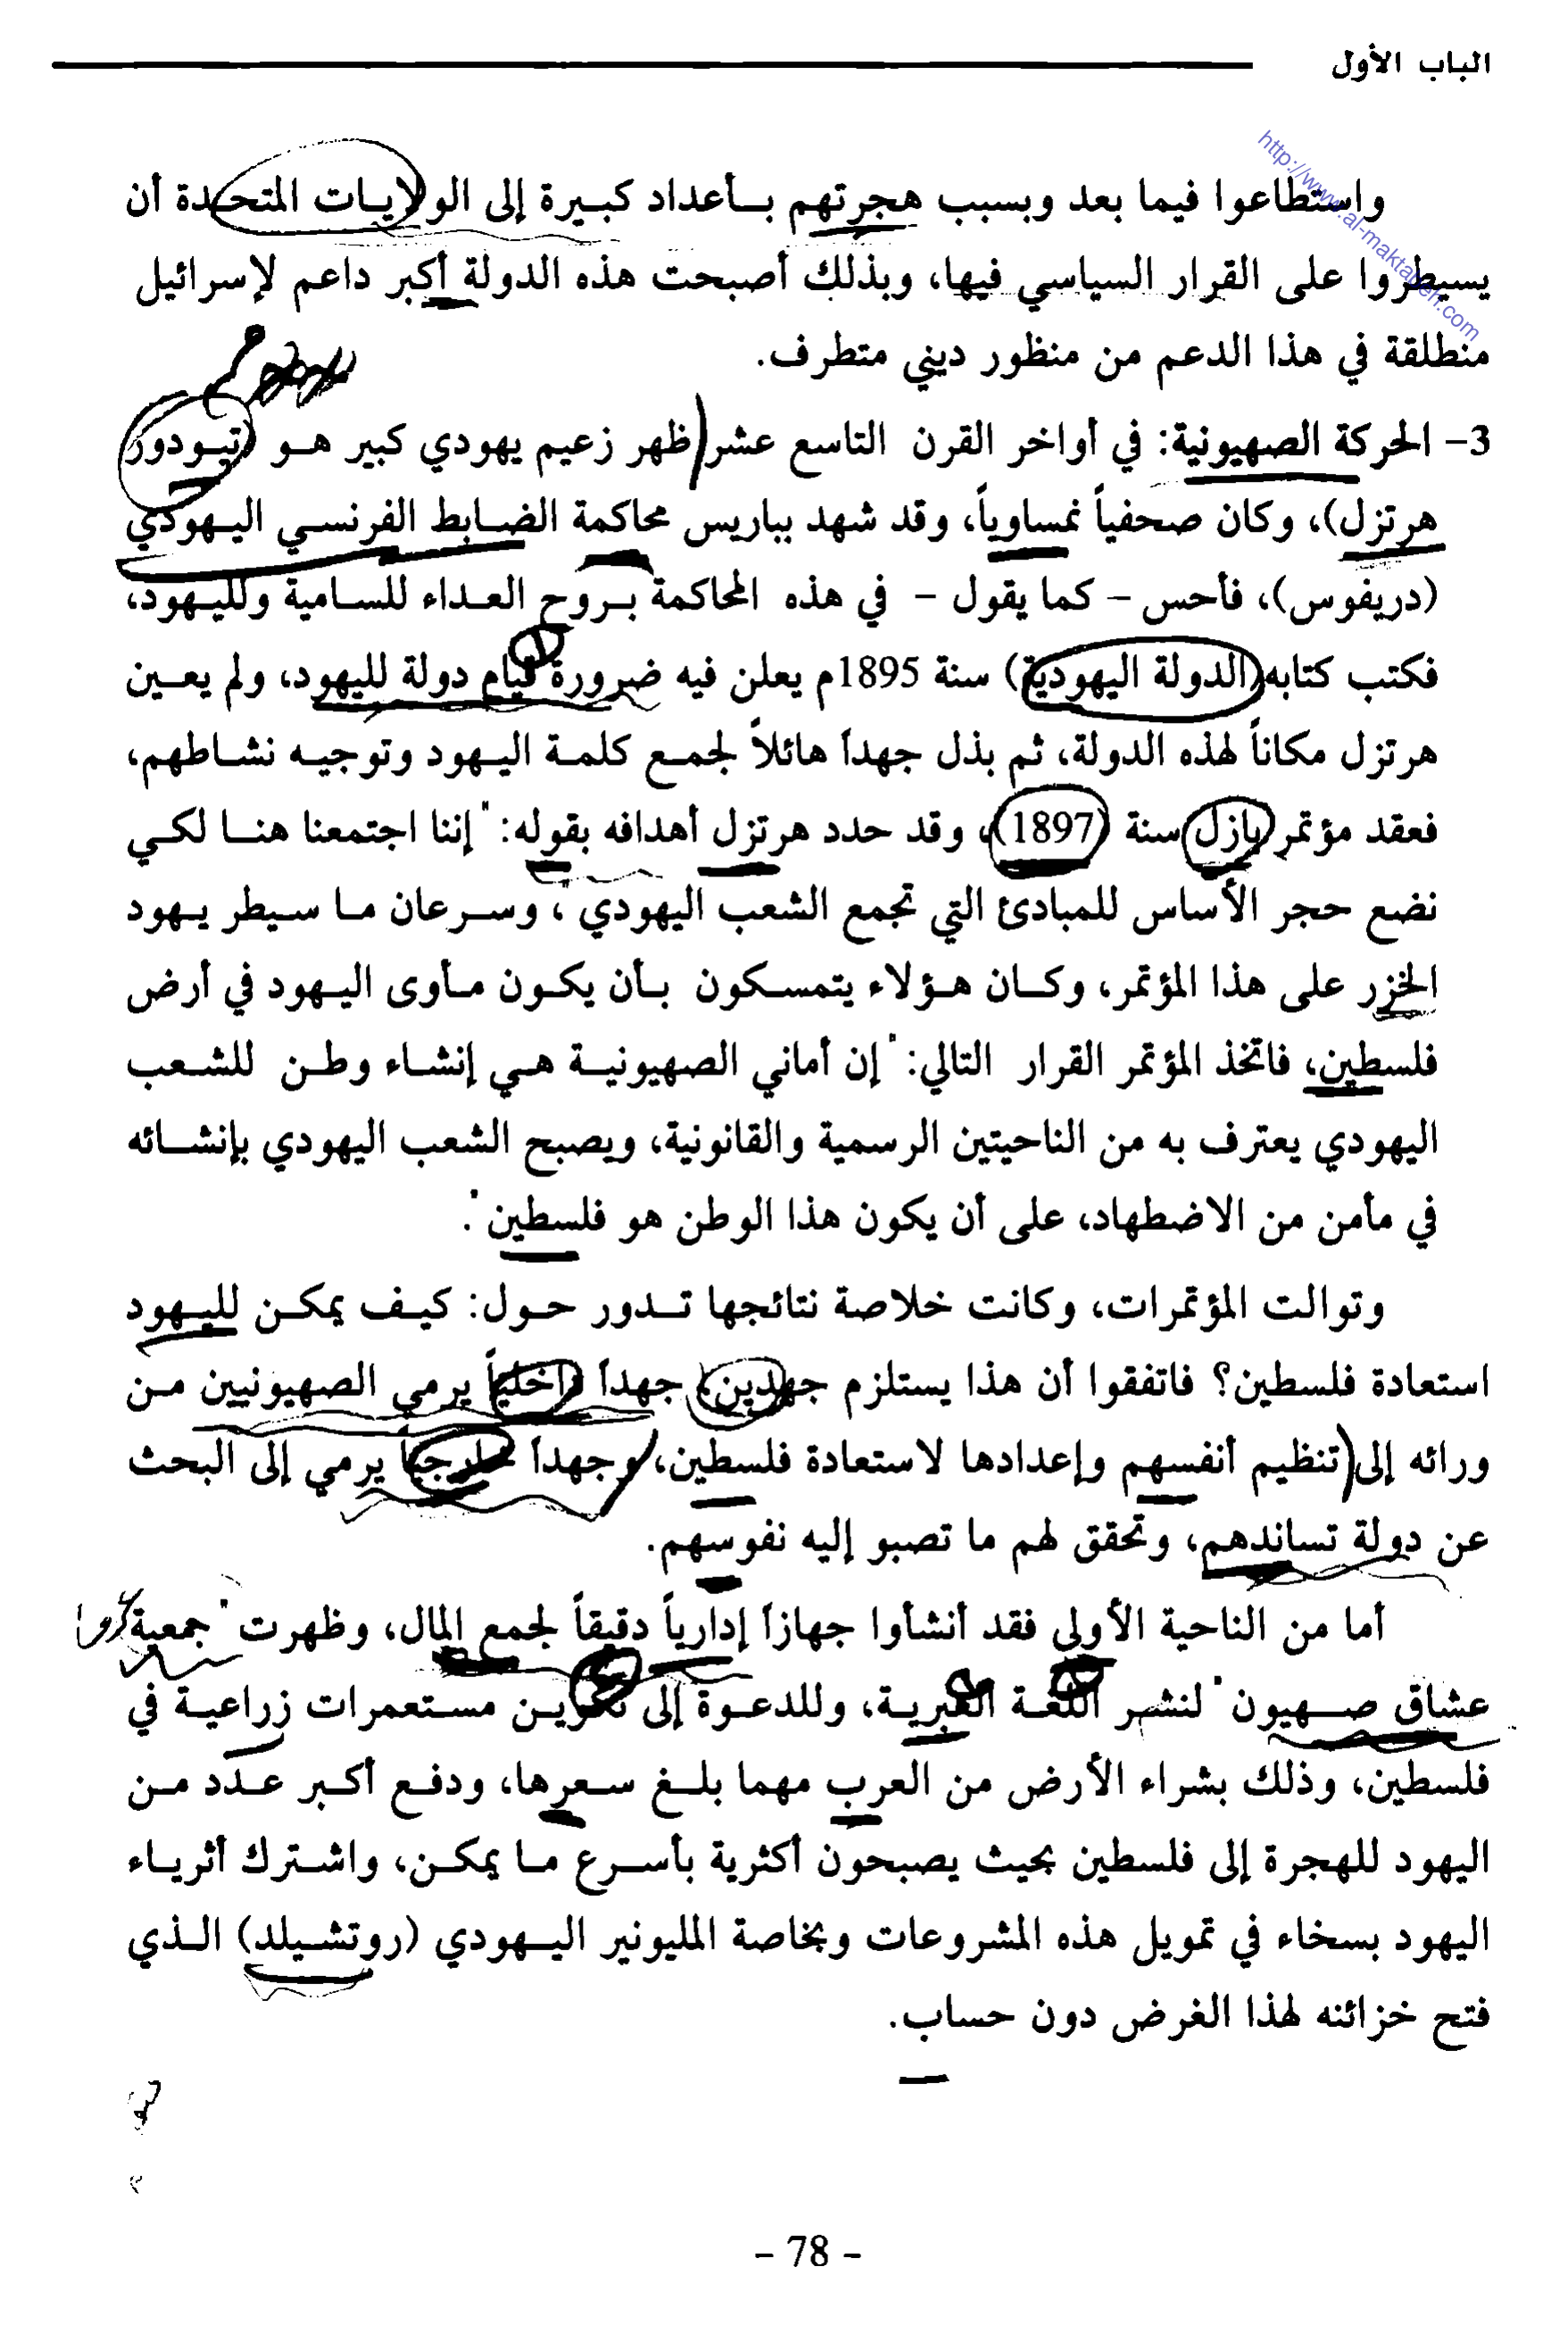 الباب الأول
http://www.al-maktabeh.com
واستطاعوا فيما بعد وبسبب هجرتهم بأعداد كبيرة إلى الولايات المتحدة أن
يسيطروا على القرار السياسي فيها، وبذلك أصبحت هذه الدولة أكبر داعم لإسرائيل
منطلقة في هذا الدعم من منظور ديني متطرف.
3- الحركة الصهيونية: في أواخر القرن التاسع عشر ظهر زعيم يهودي كبير هو (تيودور
هرتزل)، وكان صحفياً نمساوياً، وقد شهد بباريس محاكمة الضابط الفرنسي اليهودي
(دريفوس)، فأحس - كما يقول - في هذه المحاكمة بروح العداء للسامية ولليهود،
فكتب كتابه (الدولة اليهودية) سنة 1895م يعلن فيه ضرورة قيام دولة لليهود، ولم يعين
هرتزل مكاناً لهذه الدولة، ثم بذل جهداً هائلاً لجمع كلمة اليهود وتوجيه نشاطهم،
فعقد مؤتمر بازل سنة (1897)، وقد حدد هرتزل أهدافه بقوله: "إننا اجتمعنا هنا لكي
نضع حجر الأساس للمبادئ التي تجمع الشعب اليهودي"، وسرعان ما سيطر يهود
الخزر على هذا المؤتمر، وكان هؤلاء يتمسكون بأن يكون مأوى اليهود في أرض
فلسطين، فاتخذ المؤتمر القرار التالي: "إن أماني الصهيونية هي إنشاء وطن للشعب
اليهودي يعترف به من الناحيتين الرسمية والقانونية، ويصبح الشعب اليهودي بإنشائه
في مأمن من الاضطهاد، على أن يكون هذا الوطن هو فلسطين".
وتوالت المؤتمرات، وكانت خلاصة نتائجها تدور حول: كيف يمكن لليهود
استعادة فلسطين؟ فاتفقوا أن هذا يستلزم جهدين، جهداً داخلياً يرمي الصهيونيين من
ورائه إلى تنظيم أنفسهم وإعدادها لاستعادة فلسطين، وجهداً خارجياً يرمي إلى البحث
عن دولة تساندهم، وتحقق لهم ما تصبو إليه نفوسهم.
أما من الناحية الأولى فقد أنشأوا جهازاً إدارياً دقيقاً لجمع المال، وظهرت "جمعية
عشاق صهيون" لنشر اللغة العبرية، وللدعوة إلى تكوين مستعمرات زراعية في
فلسطين، وذلك بشراء الأرض من العرب مهما بلغ سعرها، ودفع أكبر عدد من
اليهود للهجرة إلى فلسطين بحيث يصبحون أكثرية بأسرع ما يمكن، واشترك أثرياء
اليهود بسخاء في تمويل هذه المشروعات وبخاصة المليونير اليهودي (روتشيلد) الذي
فتح خزائنه لهذا الغرض دون حساب.
- 78 -